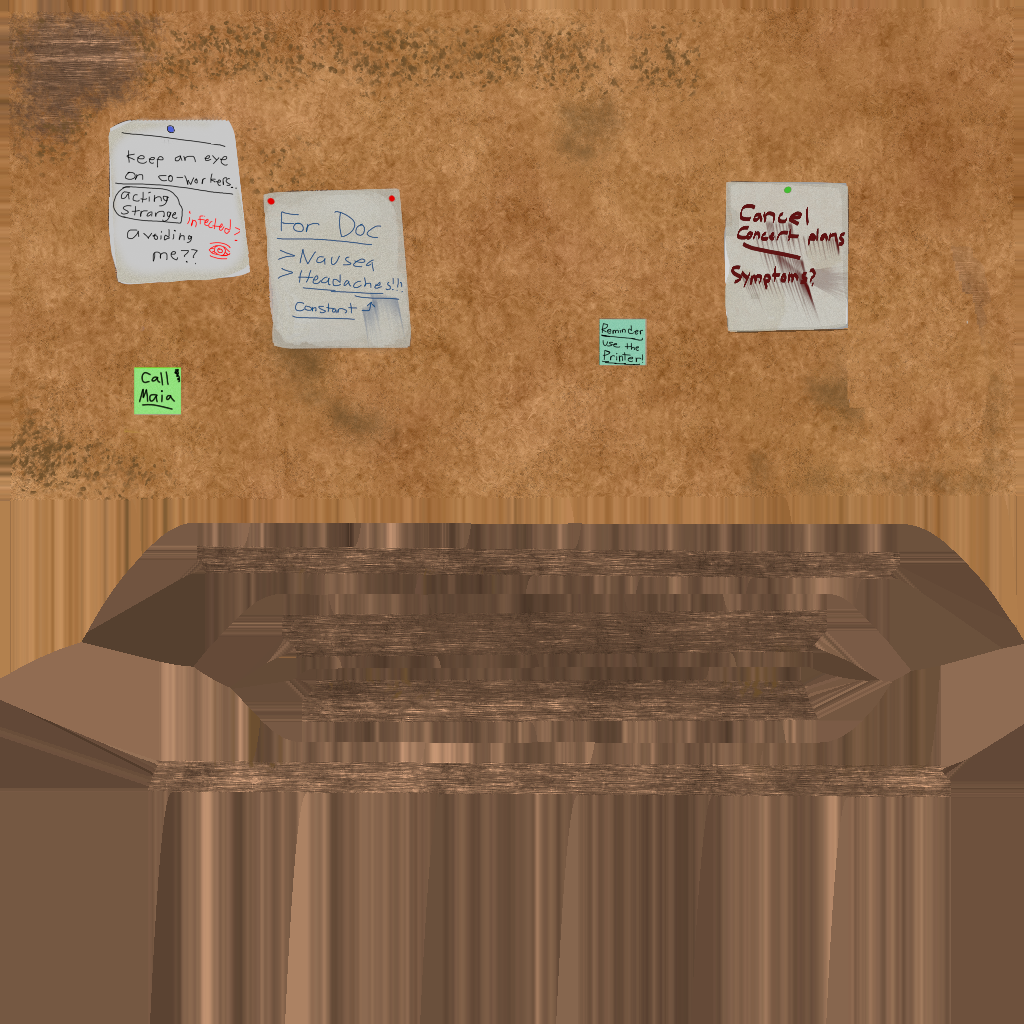 Keep an eye
on co-workers..
acting
Strange
infected?
avoiding
me??
For Doc
> Nausea
> Headaches!!!
Constant
Call
Maia
Reminder
use the
Printer!
Cancel
Concert plans
Symptoms?